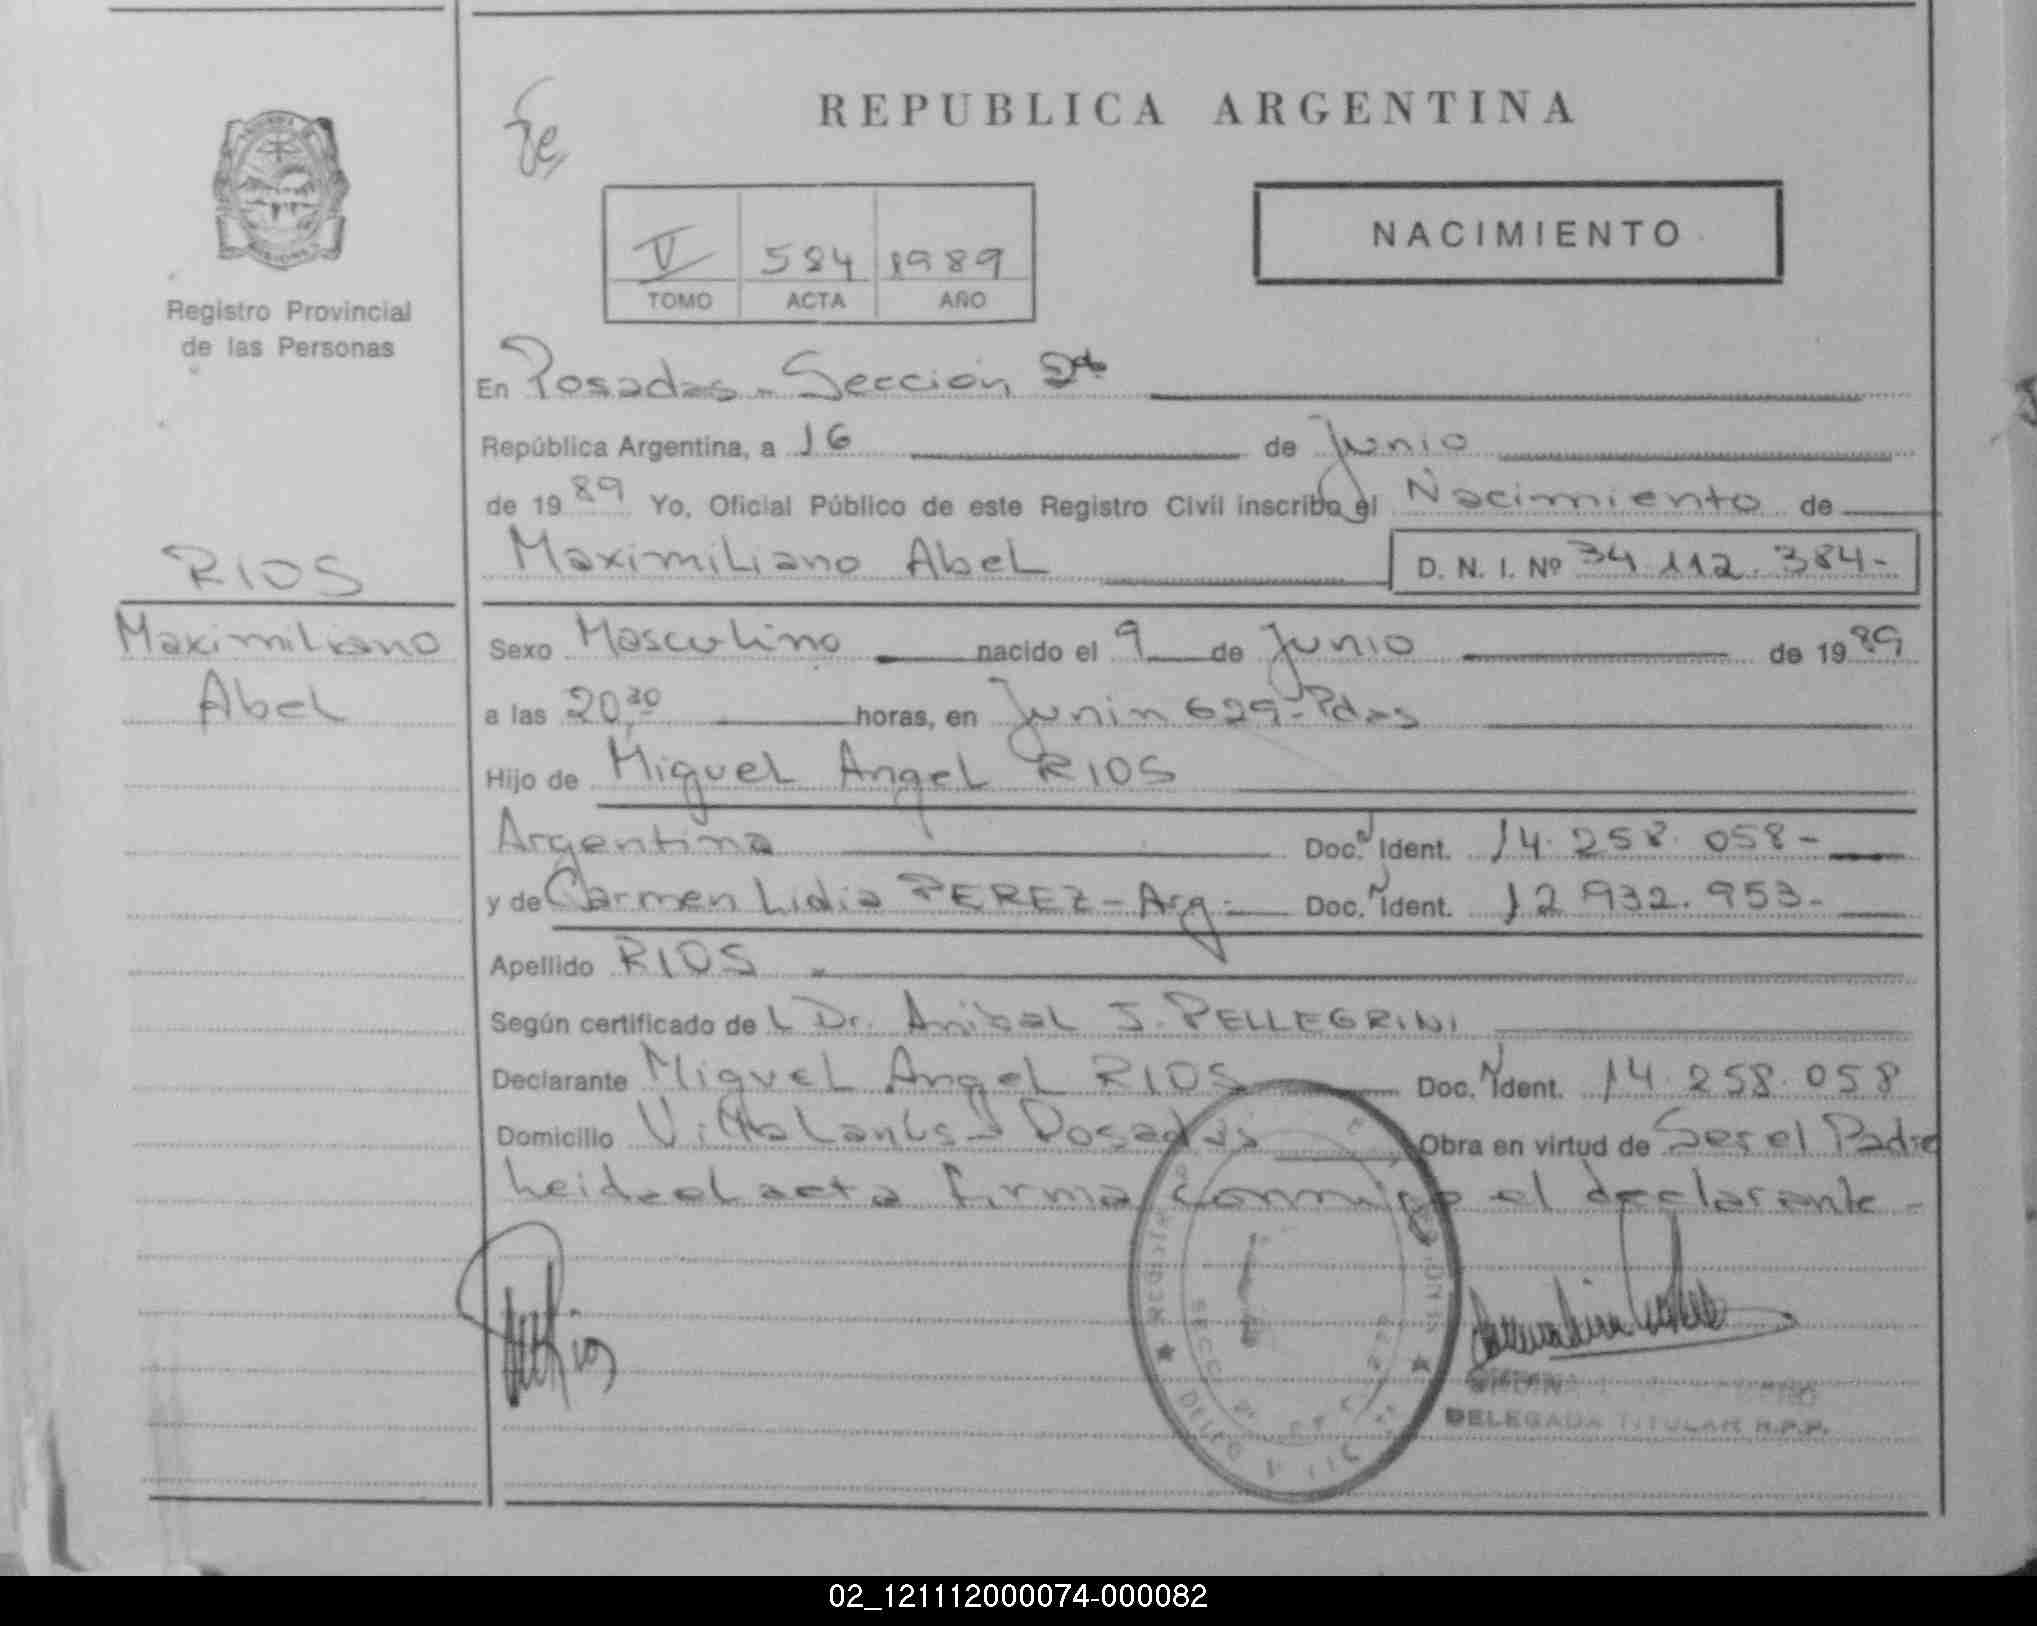 REPUBLICA ARGENTINA
NACIMIENTO
V 584 1989
TOMO ACTA AÑO
Registro Provincial
de las Personas
En Posadas - Sección 2da
República Argentina, a 16 de Junio
de 1989 Yo, Oficial Público de este Registro Civil inscribo el Nacimiento de
Maximiliano Abel D. N. I. Nº 34.112.384-
RIOS
Maximiliano
Abel
Sexo Masculino nacido el 9 de Junio de 1989
a las 20,30 horas, en Junin 629 - Pdas
Hijo de Miguel Angel RIOS
Argentina Doc. Ident. 14.258.058-
y de Carmen Lidia PEREZ - Arg - Doc. Ident. 12.932.953-
Apellido RIOS
Según certificado del Dr. Anibal J. PELLEGRINI
Declarante Miguel Angel RIOS Doc. Ident. 14.258.058
Domicilio Posadas Obra en virtud de Ser el Padre
Leida el acta firma conmigo el declarante -
DELEGADA TITULAR R.P.P.
02_121112000074-000082